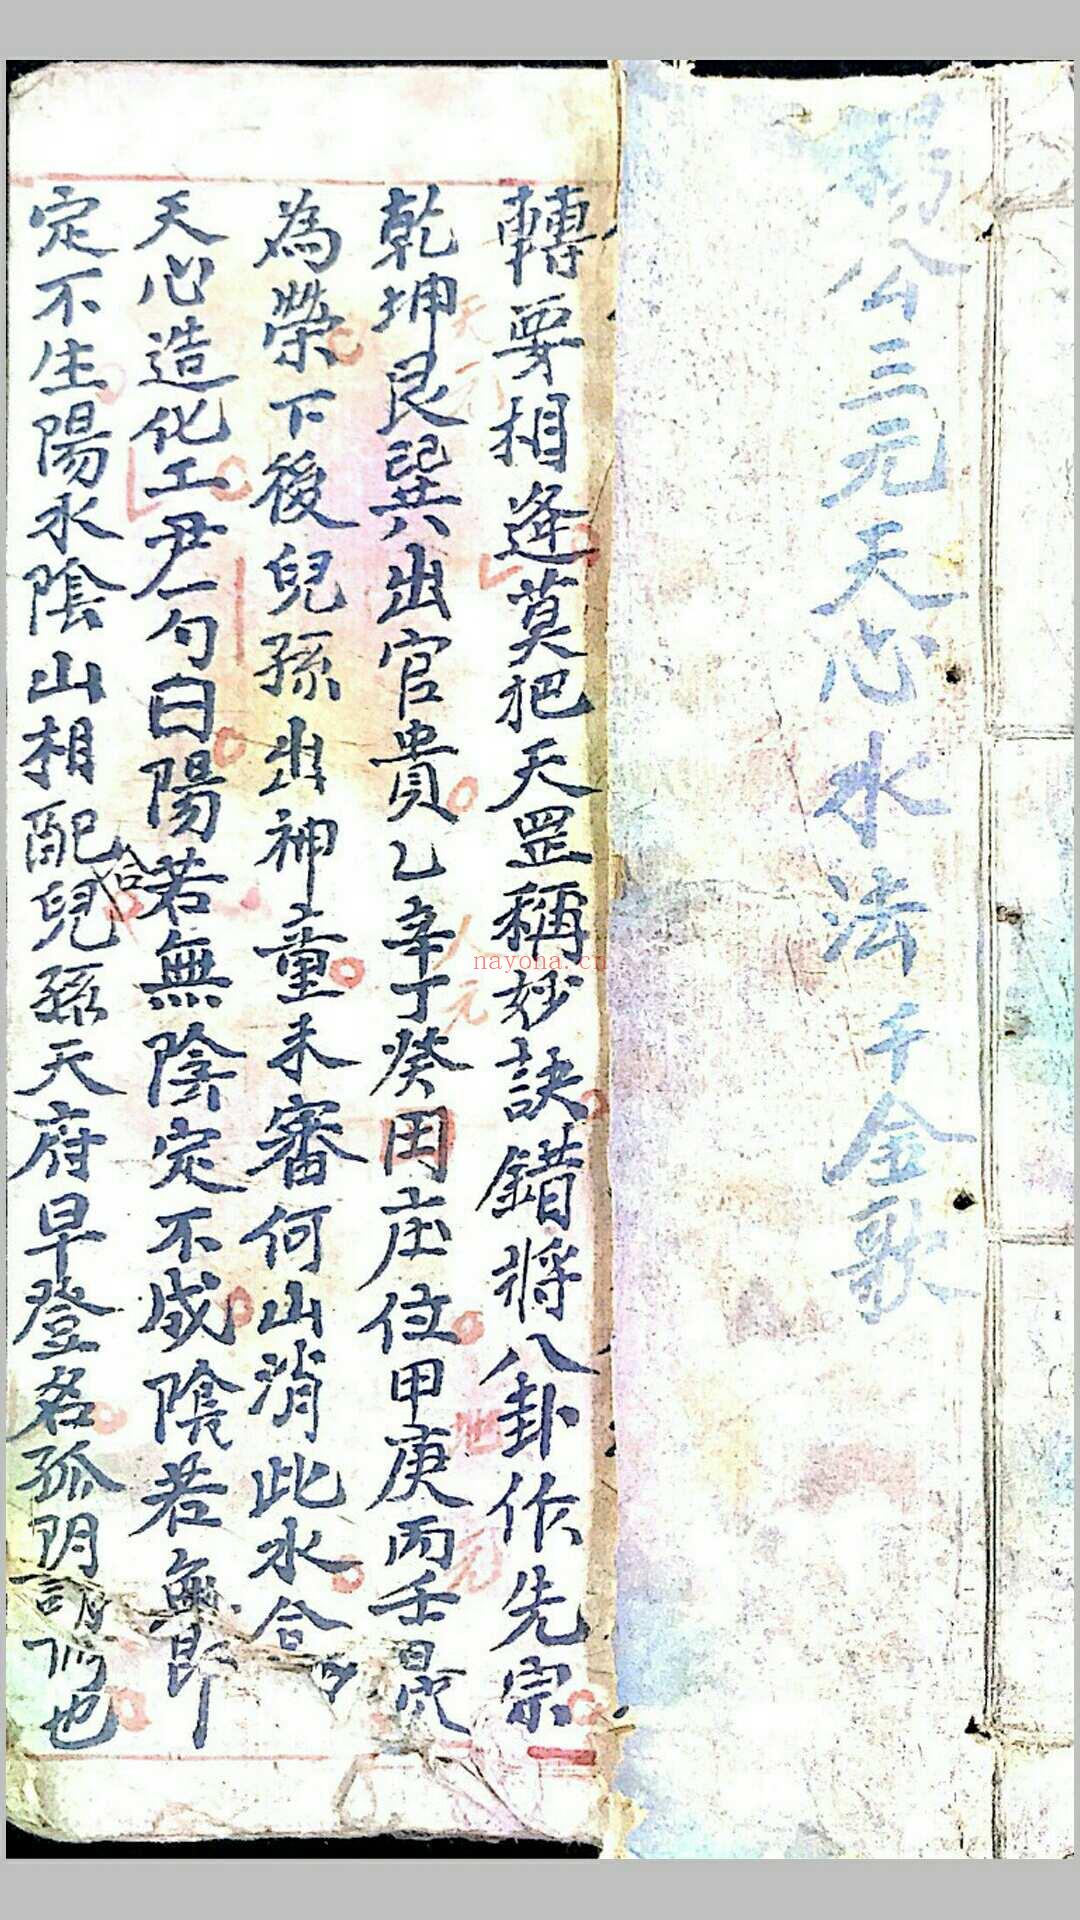 楊公三元天心水法千金歌
轉要相逢莫把天罡稱妙訣錯將八卦作先宗
乾坤艮巽出官貴乙辛丁癸田庄位甲庚丙壬
為榮下後兒孫出神童未審何山消此水合
天心造化工尹一勺曰陽若無陰定不成陰若無陽
定不生陽水陰山相配合兒孫天府早登名孤陰
天元
人元
地元
nayona.cn